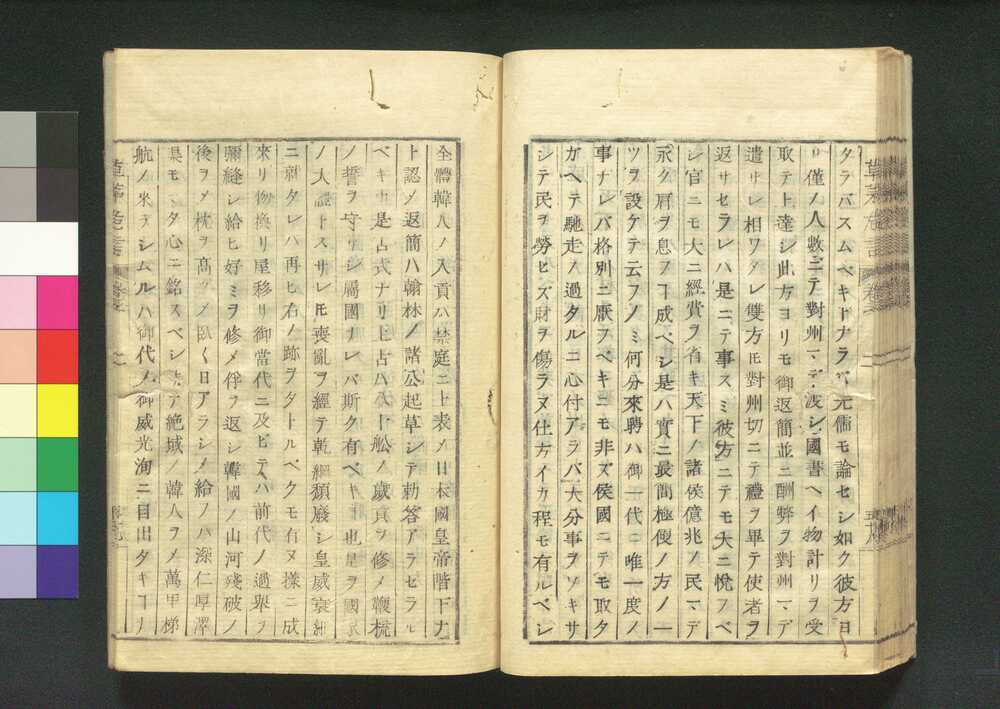 タラバスムベキ ナラズ元儒モ論セシ如ク彼方ヨ
リ僅ノ人數ニテ對州マデ渡シ國書ヘイ物計リヲ受
取テ上達シ此方ヨリモ御返簡並ニ酬弊ヲ對州マデ
遣サレ相ワタレ雙方 對州切ニテ禮ヲ畢テ使者ヲ
返サセラレハ是ニテ事スミ彼方ニテモ大ニ悅フベ
シ官ニモ大ニ經費ヲ省キ天下ノ諸侯億兆ノ民マデ
永ク肩ヲ息フ 成ベシ是ハ實ニ最簡極便ノ方ノ一
ツヲ設ケテ云フノミ何分來聘ハ御一代ニ唯一度ノ
事ナレバ格別ニ厭フベキニモ非ズ侯國ニテモ取タ
ガヘテ馳走ノ過タルニ心付アラバ大分事ヲソキサ
シテ民ヲ勞ヒズ財ヲ傷ラヌ仕方イカ程モ有ルベシ
全體韓人ノ入貢ハ禁庭ニ上表メ日本國皇帝階下ナ
ト認メ返簡ハ翰林ノ諸公起草シテ勅答アラゼラル
ベキ 是古式ナリ上古八十舩ノ歲貢ヲ修メ鞭梳
ノ誓ヲ守リシ屬國ナレバ斯ク有ベキ 也是ヲ國家
ノ大 トスサレ 喪亂ヲ經テ乾綱頽廢シ皇威衰
ニ就タレハ再ヒ右ノ跡ヲタトルベクモ有ヌ樣ニ成
來リ物換リ屋移リ御當代ニ及ビテハ前代ノ過擧ヲ
彌縫シ給ヒ好ミヲ修メ俘ヲ返シ韓國ノ山河殘破ノ
後ヲメ枕ヲ髙 メ臥ク日アラシメ給ノハ深仁厚澤
モ タ心ニ銘スベシ テ絶域ノ韓人ヲメ萬里梯
航ノ來ヲシムルハ御代ノ御威光洵ニ目出タキ ノ